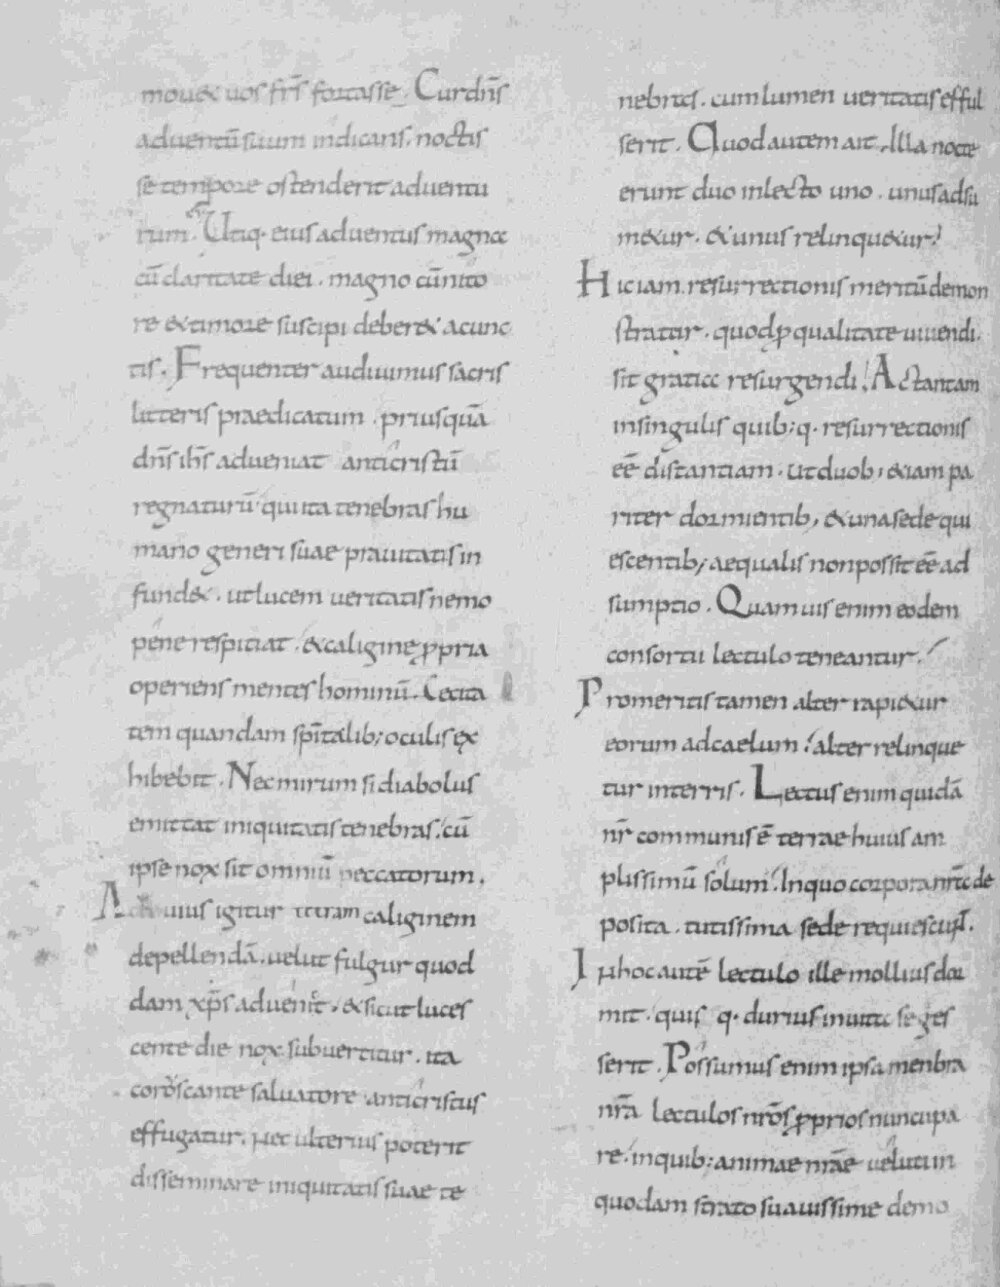 mouet uos frs̄ fortasse. Cur dn̄s
aduentū suum indicans. noctis
se tempore ostenderit aduentu
rum. Utiq· eius aduentus magna
cū claritate diei. magno cū nito
re et timore suscipi deberet a cunc
tis. Frequenter audiuimus sacris
litteris praedicatum. priusquā
dn̄s ih̄s adueniat anticristū
regnaturū. qui ita tenebras hu
mano generi suae prauitatis in
fundet. ut lucem ueritatis nemo
pene respiciat. et caligine ꝓpria
operiens mentes hominū. Cecita
tem quandam sp̄italib; oculis ex
hibebit. Nec mirum si diabolus
emittat iniquitatis tenebras. cū
ipse nox sit omniū peccatorum.
uius igitur tetram caliginem
depellendā. uelut fulgur quod
dam xp̄s aduenit. et sicut luces
cente die nox subuertitur. ita
coroscante saluatore anticristus
effugatur. Nec ulterius poterit
disseminare iniquitatis suae te
nebras. cum lumen ueritatis efful
serit. Quod autem ait. Illa nocte
erunt duo in lecto uno. unus adsu
metur. et unus relinquetur.
Hic iam resurrectionis meritū demon
stratur. quod ꝑ qualitate uiuendi.
sit gratia resurgendi. Ac tantam
in singulis quib; q· resurrectionis
eē distantiam. ut duob; etiam pa
riter dormientib; et una sede qui
escentib; aequalis non possit eē ad
sumptio. Quamuis enim eodem
consortii lectulo teneantur.
Pro meritis tamen alter rapietur
eorum ad caelum. alter relinque
tur in terris. Lectus enim quidā
nr̄ communis ē terrae huius am
plissimū solum. In quo corpora nr̄a de
posita. tutissima sede requiescunt.
In hoc autē lectulo ille mollius dor
mit. quis q· durius in uita se ges
serit. Possumus enim ipsa menbra
nr̄a lectulos nr̄os ꝓprios nuncupa
re. in quib; animae nr̄ae uelut in
quodam strato suauissime demo